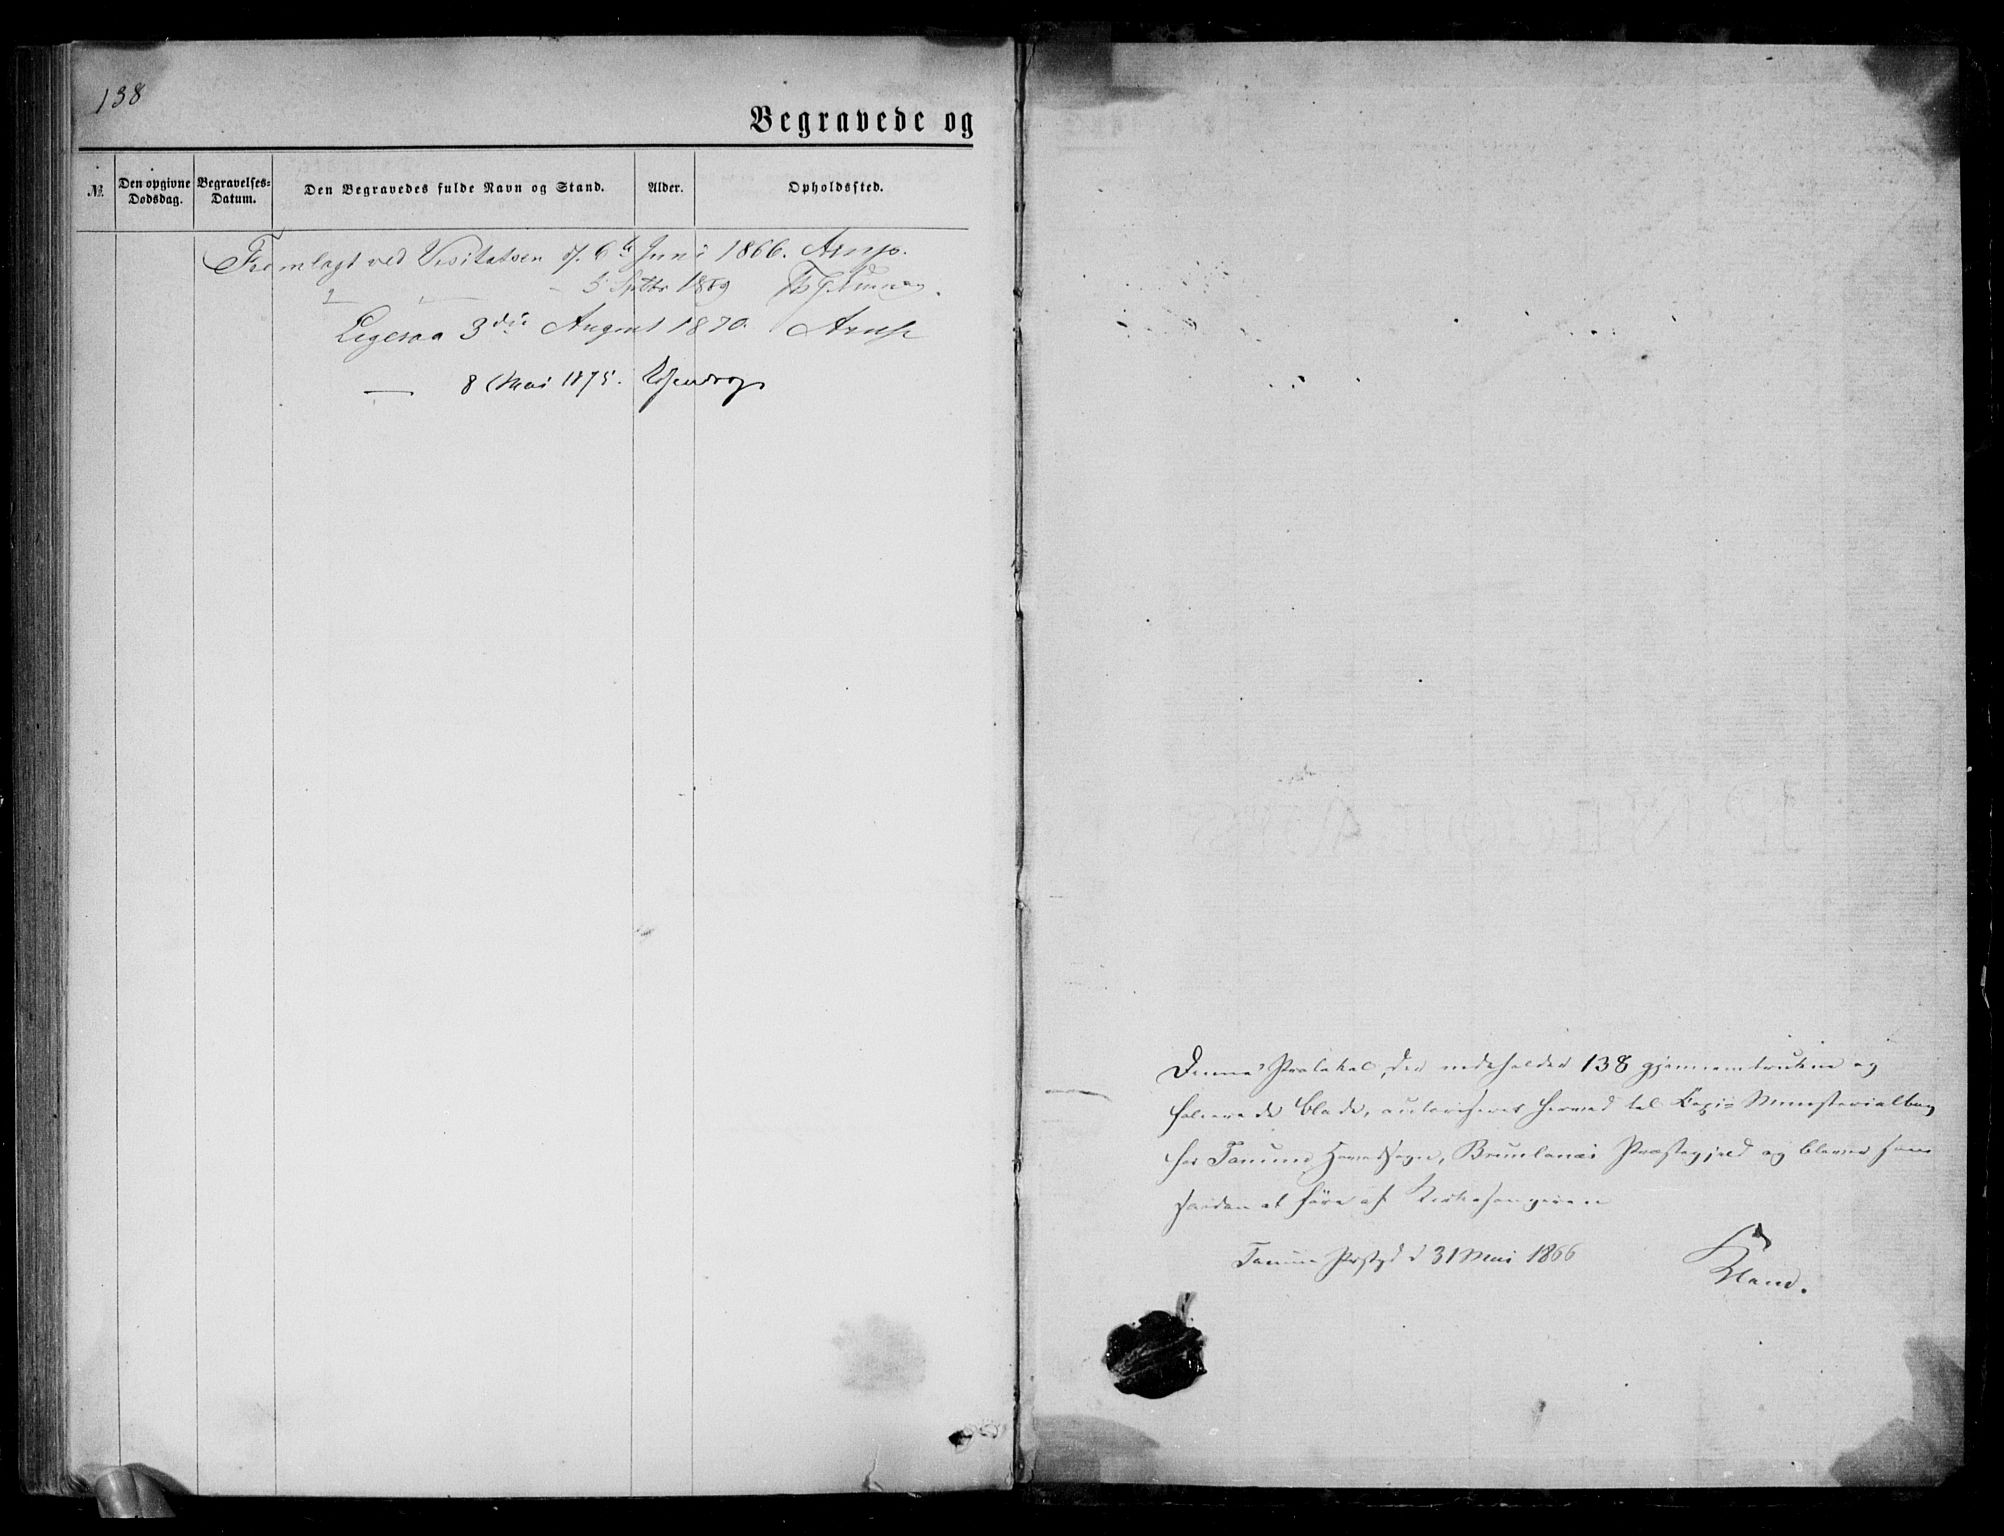 138
Begravede og
№.
Den opgivne Dødsdag.
Begravelses-Datum.
Den Begravedes fulde Navn og Stand.
Alder.
Opholdssted.
Fremlagt ved Visitatsen d. 6te Juni 1866. Arup.
5 Septbr 1869
Ligesaa 3die August 1870. Arup
— 8 Mai 1875.
Denne Protokol, der indeholder 138 gjennemtrukne og
folierede Blade, autoriseres herved til Copi-Ministerialbog
for Tanum Hovedsogn, Brunlanæs Præstegjeld og bliver som
saadan at føre af Kirkesangeren
Tanum Prstgd d 31 Mai 1866